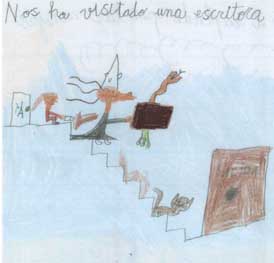 Nos ha visitado una escritora